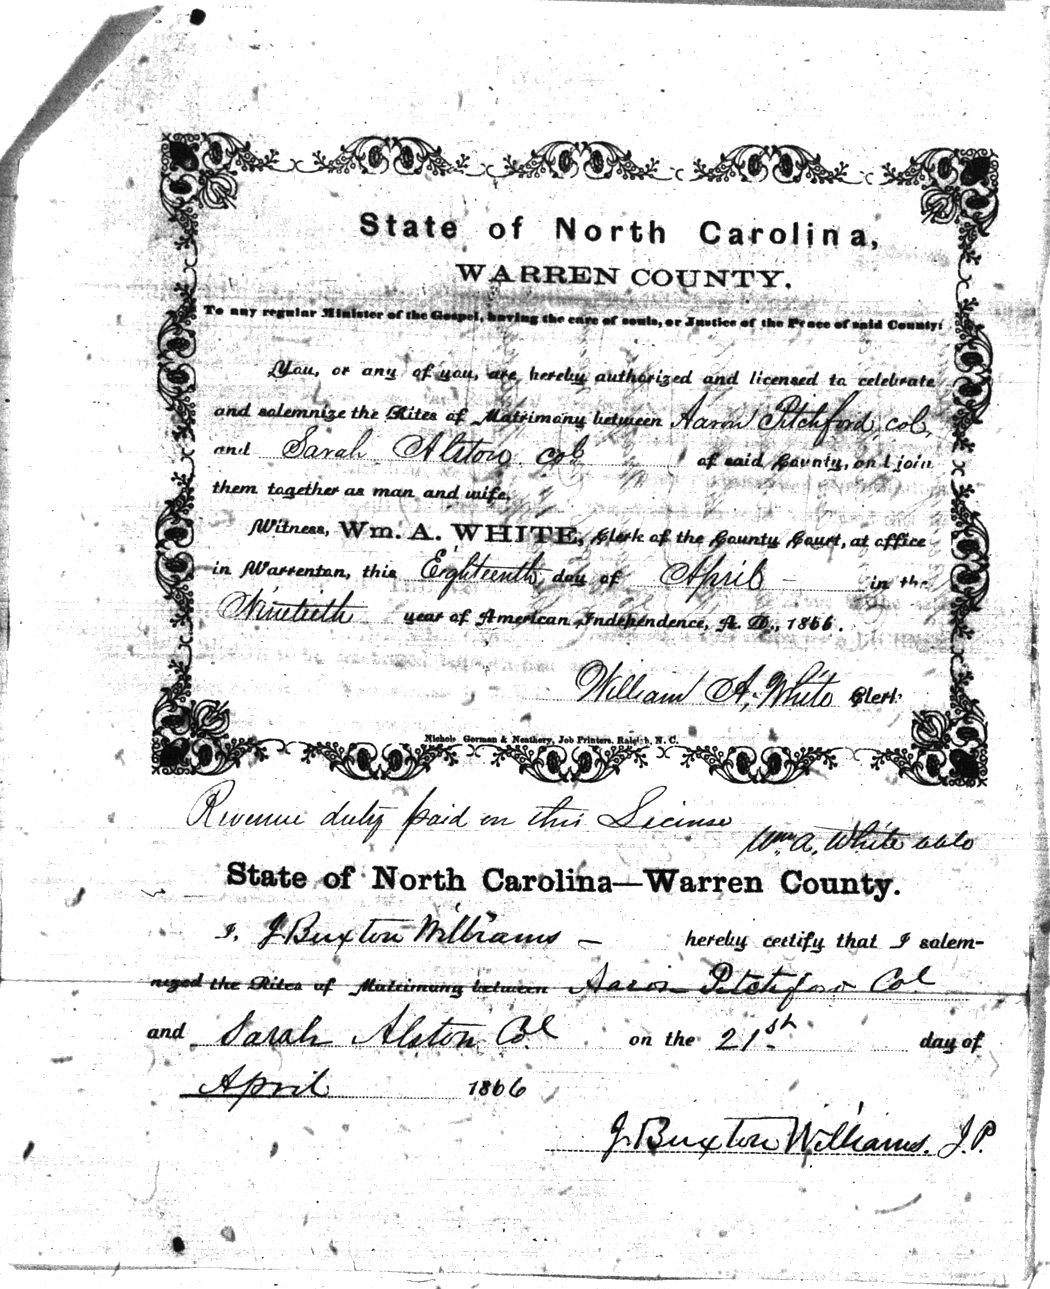 State of North Carolina,
WARREN COUNTY.
To any regular Minister of the Gospel, having the care of souls, or Justice of the Peace of said County:
You, or any of you, are hereby authorized and licensed to celebrate
and solemnize the Rites of Matrimony between Aaron Pitchford, col,
and Sarah Alston col of said County, and join
them together as man and wife.
Witness, Wm. A. WHITE, Clerk of the County Court, at office
in Warrenton, this Eighteenth day of April - in the
Ninetieth year of American Independence, A. D., 1866.
William A, White Clerk
Nichols Gorman & Neathery, Job Printers, Raleigh, N. C.
Revenue duty paid on this License
Wm A, White
State of North Carolina—Warren County.
I, J. Buxton Williams – hereby certify that I solem-
nized the Rites of Matrimony between Aaron Pitchford Col
and Sarah Alston Col on the 21st day of
April 1866
J. Buxton Williams. J.P.